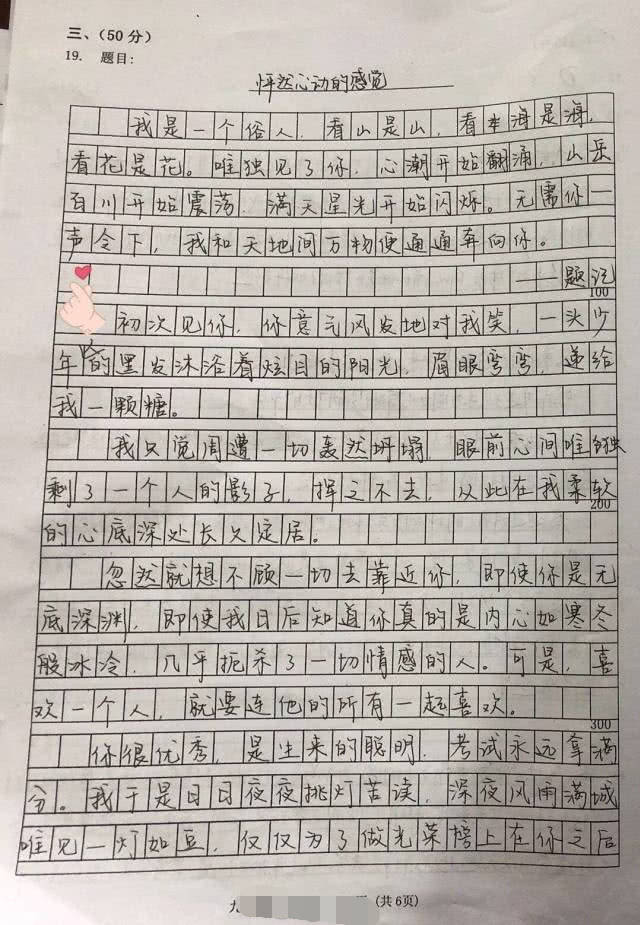 三、（50分）
19. 题目：
怦然心动的感觉
我是一个俗人，看山是山，看海是海，
看花是花。唯独见了你，心潮开始翻涌，山岳
百川开始震荡，满天星光开始闪烁。无需你一
声令下，我和天地间万物便通通奔向你。
——题记
100
初次见你，你意气风发地对我笑，一头少
年的黑发沐浴着炫目的阳光，眉眼弯弯，递给
我一颗糖。
我只觉周遭一切轰然坍塌，眼前心间唯独
剩了一个人的影子，挥之不去，从此在我柔软
200
的心底深处长久定居。
忽然就想不顾一切去靠近你，即使你是无
底深渊，即使我日后知道你真的是内心如寒冬
般冰冷，几乎扼杀了一切情感的人。可是，喜
欢一个人，就要连他的所有一起喜欢。
300
你很优秀，是生来的聪明，考试永远拿满
分。我于是日日夜夜挑灯苦读，深夜风雨满城
唯见一灯如豆，仅仅为了做光荣榜上在你之后
九
（共6页）